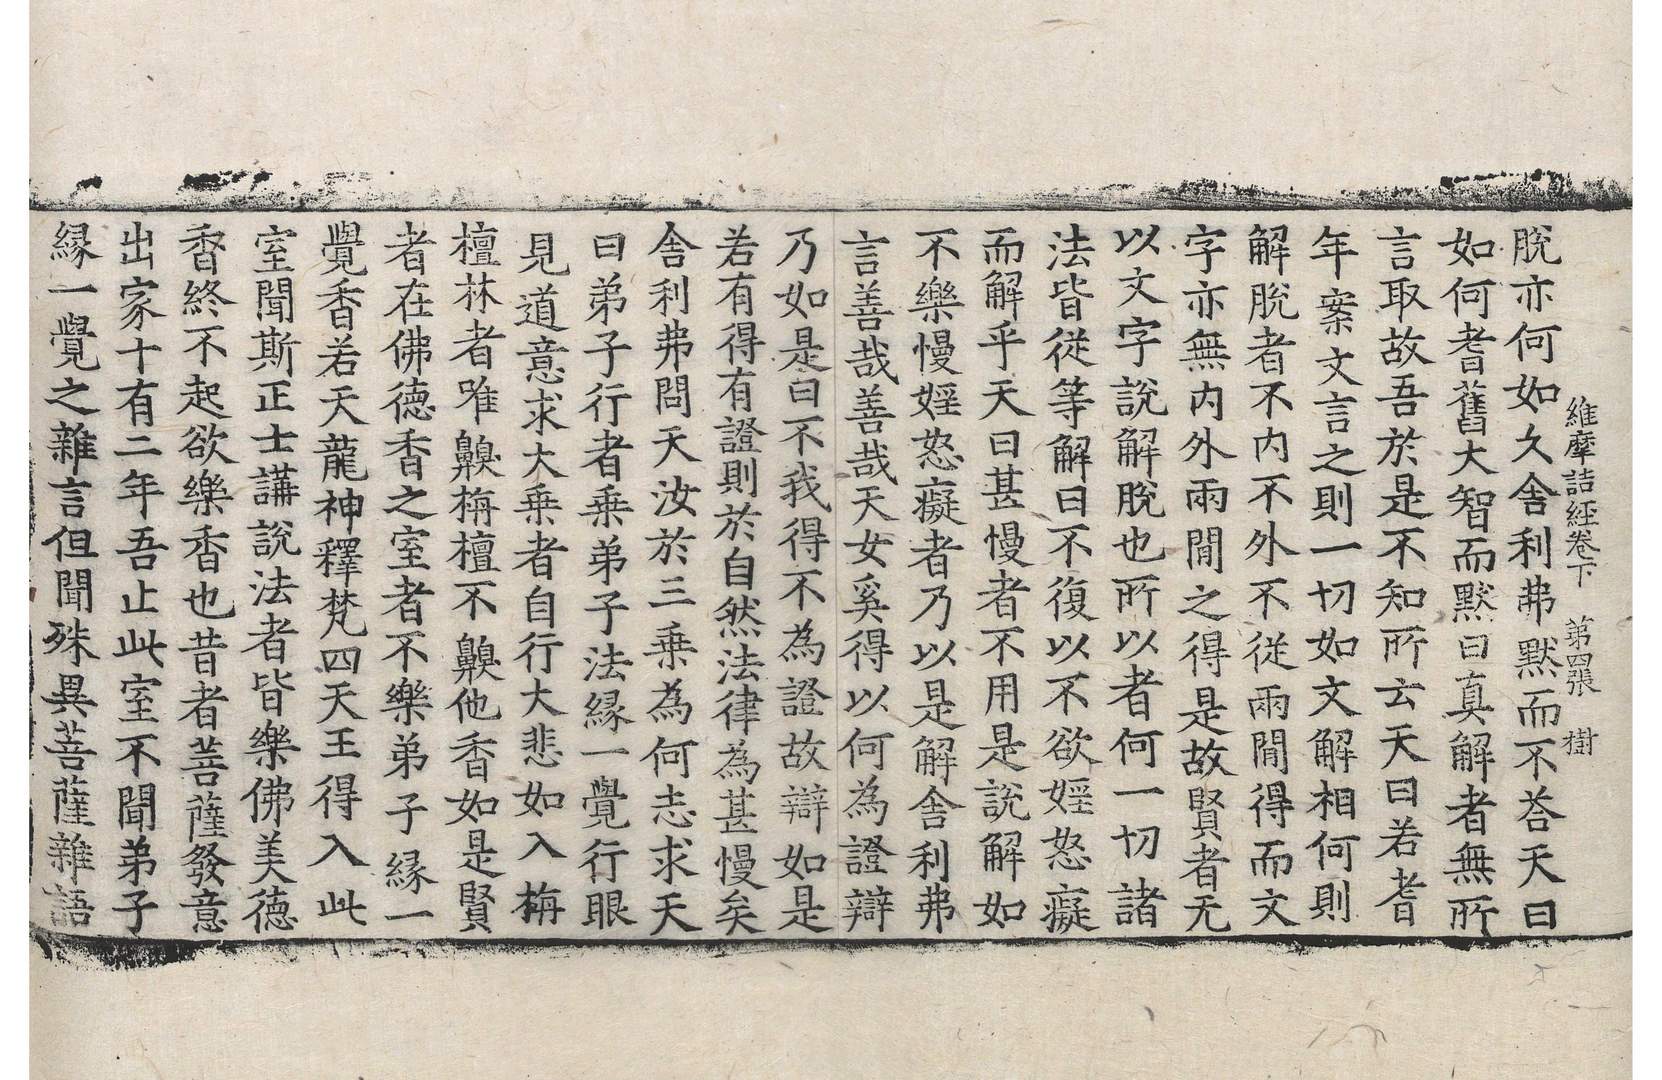 維摩詰經卷下　第四張　樹
脫亦何如久舍利弗默而不荅天曰
如何耆舊大智而默曰真解者無所
言取故吾於是不知所云天曰若耆
年案文言之則一切如文解相何則
解脫者不內不外不從兩閒得而文
字亦無內外兩閒之得是故賢者无
以文字說解脫也所以者何一切諸
法皆從等解曰不復以不欲婬怒癡
而解乎天曰甚慢者不用是說解如
不樂慢婬怒癡者乃以是解舍利弗
言善哉善哉天女奚得以何為證辯
乃如是曰不我得不為證故辯如是
若有得有證則於自然法律為甚慢矣
舍利弗問天汝於三乘為何志求天
曰弟子行者乘弟子法緣一覺行眼
見道意求大乘者自行大悲如入栴
檀林者唯齅栴檀不齅他香如是賢
者在佛德香之室者不樂弟子緣一
覺香若天龍神釋梵四天王得入此
室聞斯正士講說法者皆樂佛美德
香終不起欲樂香也昔者菩薩發意
出家十有二年吾止此室不聞弟子
緣一覺之雜言但聞殊異菩薩雜語